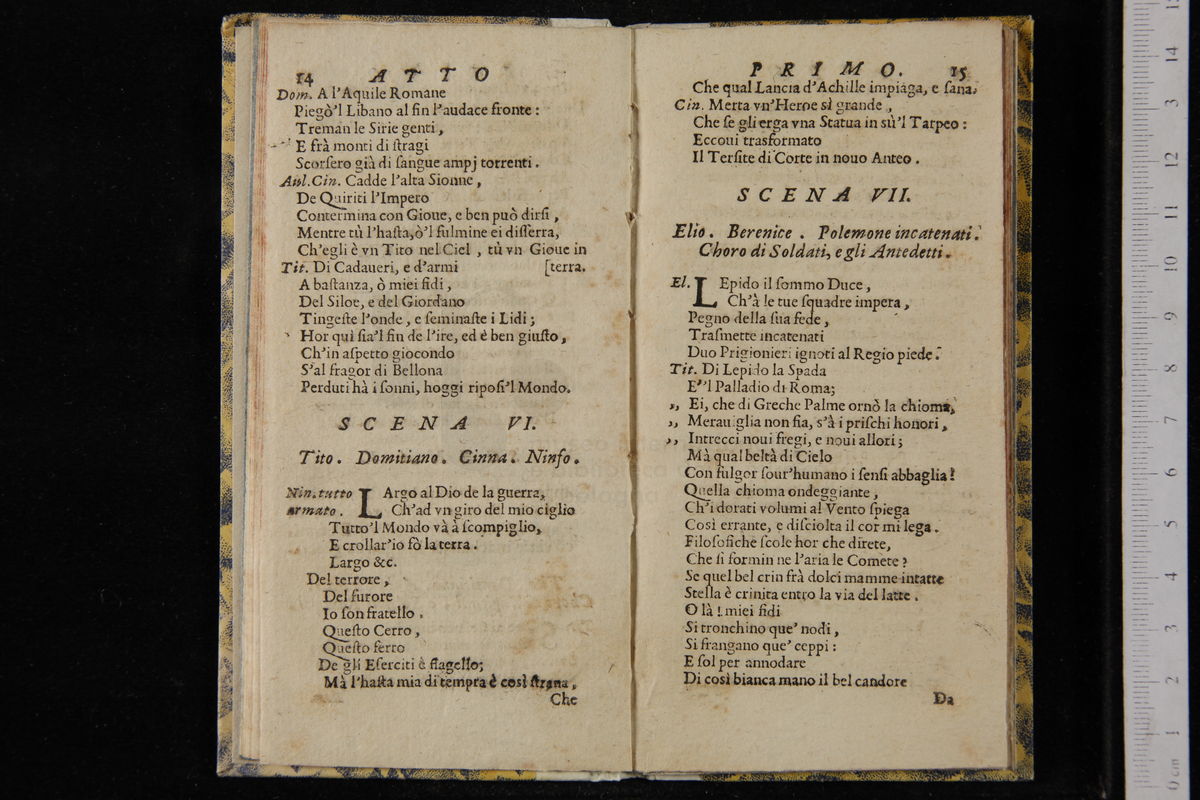 14 ATTO
Dom. A l'Aquile Romane
Piegò'l Libano al fin l'audace fronte :
Treman le Sirie genti ,
E frà monti di ſtragi
Scorſero già di ſangue ampj torrenti .
Aul.Cin. Cadde l'alta Sionne ,
De Quiriti l'Impero
Contermina con Gioue, e ben può dirſi ,
Mentre tù l'haſta,ò'l fulmine ei diſſerra,
Ch'egli è vn Tito nel Ciel , tù vn Gioue in
Tit. Di Cadaueri, e d'armi [terra.
A baſtanza, ò miei fidi ,
Del Siloe, e del Giordano
Tingeſte l'onde , e ſeminaſte i Lidi ;
Hor quì ſia'l fin de l'ire, ed è ben giuſto ,
Ch'in aſpetto giocondo
S'al fragor di Bellona
Perduti hà i ſonni, hoggi ripoſi'l Mondo.
SCENA VI.
Tito . Domitiano . Cinna . Ninfo .
Nin.tutto LArgo al Dio de la guerra,
armato . Ch'ad vn giro del mio ciglio
Tutto'l Mondo và à ſcompiglio,
E crollar'io fò la terra .
Largo &c.
Del terrore ,
Del furore
Io ſon fratello .
Queſto Cerro ,
Queſto ferro
De gli Eſerciti è flagello;
Mà l'haſta mia di tempra è così ſtrana ,
Che
PRIMO. 15
Che qual Lancia d'Achille impiaga, e ſana.
Cin. Merta vn'Heroe sì grande ,
Che ſe gli erga vna Statua in sù'l Tarpeo :
Eccoui trasformato
Il Terſite di Corte in nouo Anteo .
SCENA VII.
Elio . Berenice . Polemone incatenati .
Choro di Soldati, e gli Antedetti .
El. LEpido il ſommo Duce ,
Ch'à le tue ſquadre impera ,
Pegno della ſua fede ,
Traſmette incatenati
Duo Prigionieri ignoti al Regio piede .
Tit. Di Lepido la Spada
E''l Palladio di Roma;
,, Ei, che di Greche Palme ornò la chioma,
,, Merauiglia non fia, s'à i priſchi honori ,
,, Intrecci noui fregi, e noui allori ;
Mà qual beltà di Cielo
Con fulgor ſour'humano i ſenſi abbaglia !
Quella chioma ondeggiante ,
Ch'i dorati volumi al Vento ſpiega
Così errante, e diſciolta il cor mi lega .
Filoſofiche ſcole hor che direte,
Che ſi formin ne l'aria le Comete ?
Se quel bel crin frà dolci mamme intatte
Stella è crinita entro la via del latte .
O là ! miei fidi
Si tronchino que' nodi ,
Si frangano que' ceppi :
E ſol per annodare
Di così bianca mano il bel candore
Da
0 cm 1 2 3 4 5 6 7 8 9 10 11 12 3 14 15